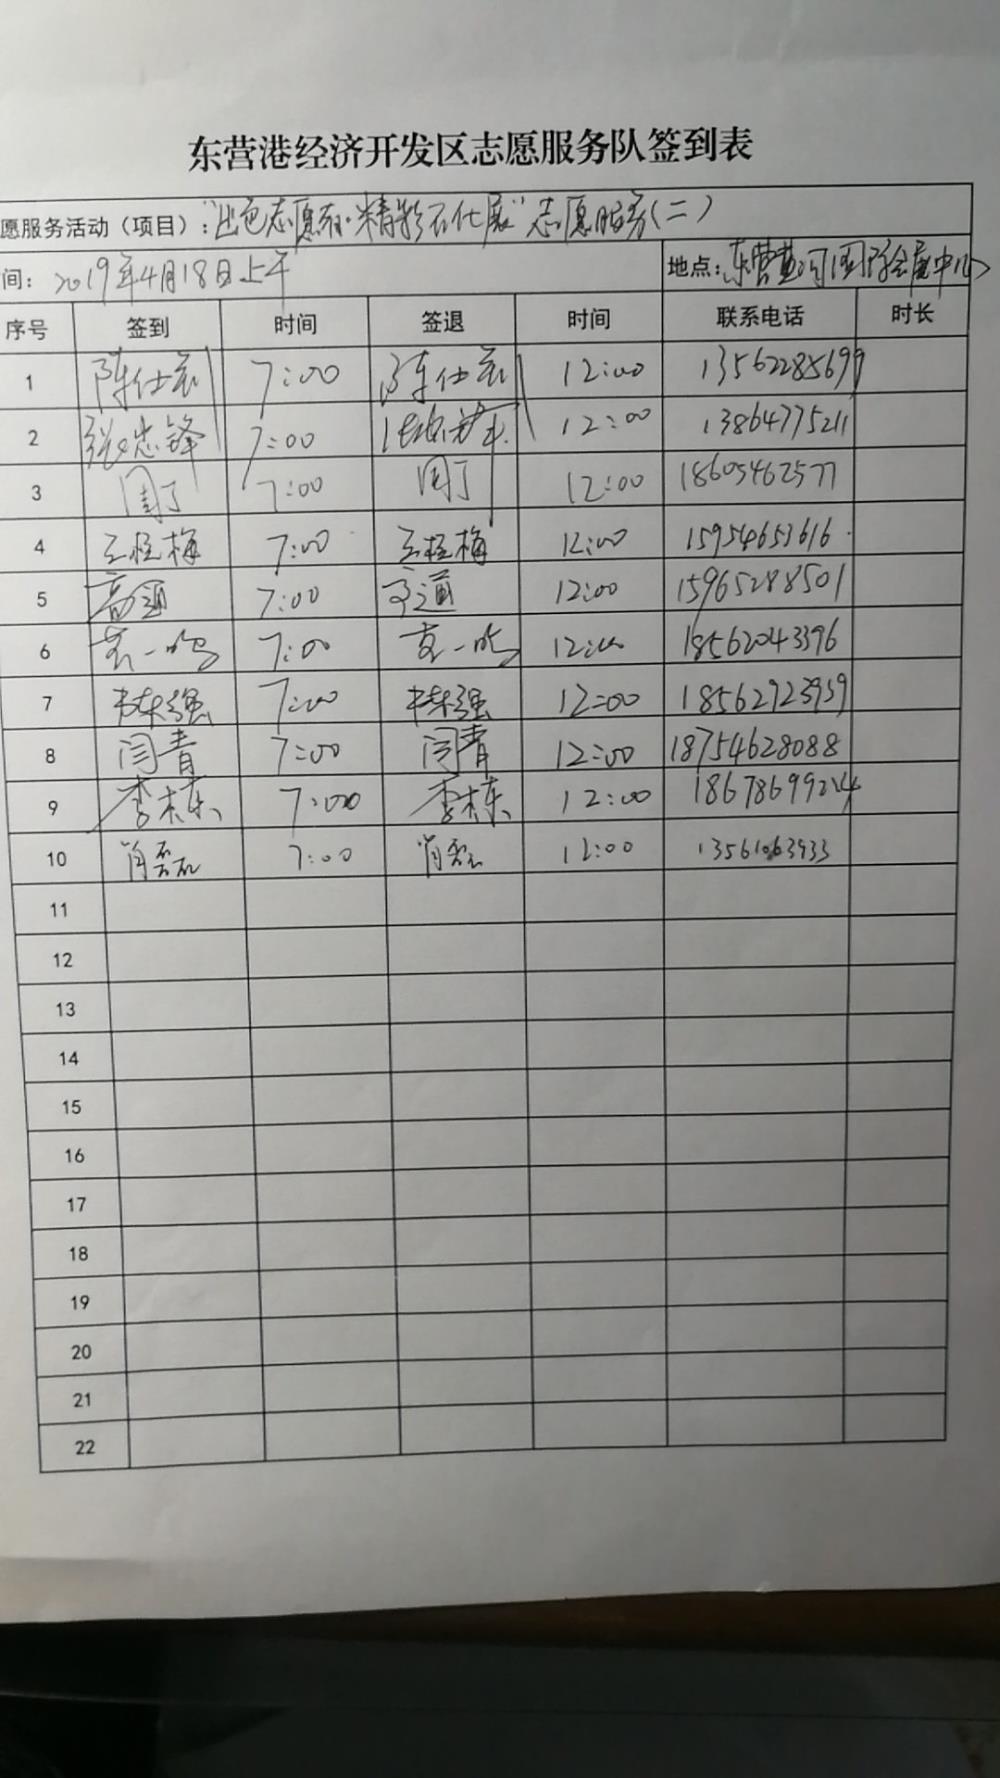 东营港经济开发区志愿服务队签到表
愿服务活动（项目）：“出色志愿行·精彩石化展”志愿服务（二）
间：2019年4月18日上午 地点：东营黄河国际会展中心
序号 签到 时间 签退 时间 联系电话 时长
1 陈仕 7:00 陈仕 12:00 13562285699
2 张忠锋 7:00 12:00 13864775211
3 周丁 7:00 周丁 12:00 18605462577
4 王桂梅 7:00 王桂梅 12:00 15954653616
5 高通 7:00 高通 12:00 15965288501
6 袁一鸣 7:00 袁一鸣 12:00 18562043396
7 强 7:00 强 12:00 18562923959
8 闫青 7:00 闫青 12:00 18754628088
9 李栋 7:00 李栋 12:00 18678699214
10 肖磊 7:00 肖磊 12:00 13561063933
11
12
13
14
15
16
17
18
19
20
21
22